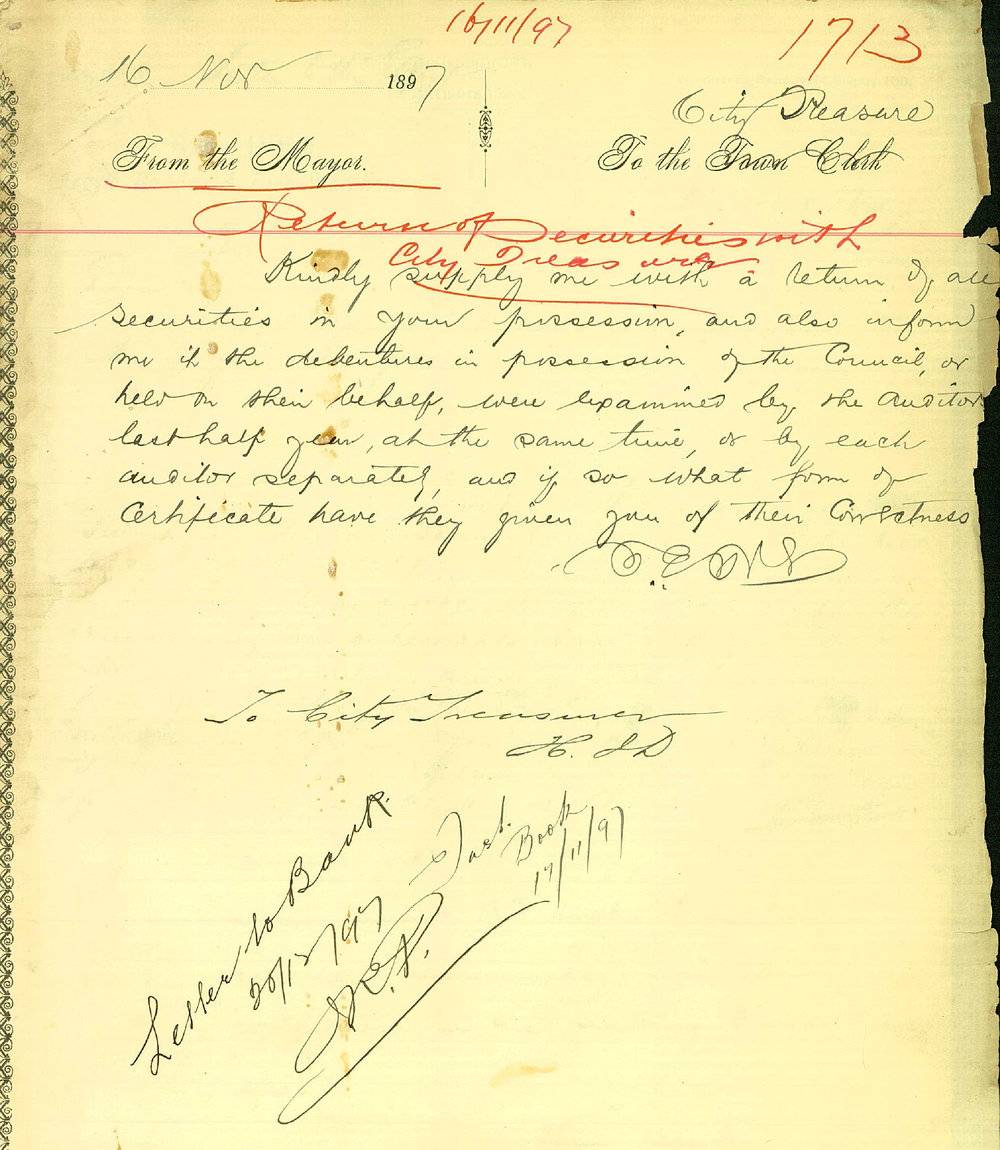 16/11/97
1713
16 Nov 1897
City Treasure
From the Mayor.
To the Town Clerk
Return of Securities with
City Treasure
Kindly supply me with a return of all
securities in your possession, and also inform
me if the debentures in possession of the Council, or
held on their behalf, were examined by the auditors
last half year, at the same time, or by each
auditor separately, and if so what form of
Certificate have they given you of their Correctness
To City Treasurer
H. S D
Book
17/11/97
Letter to Bank.
20/12/97